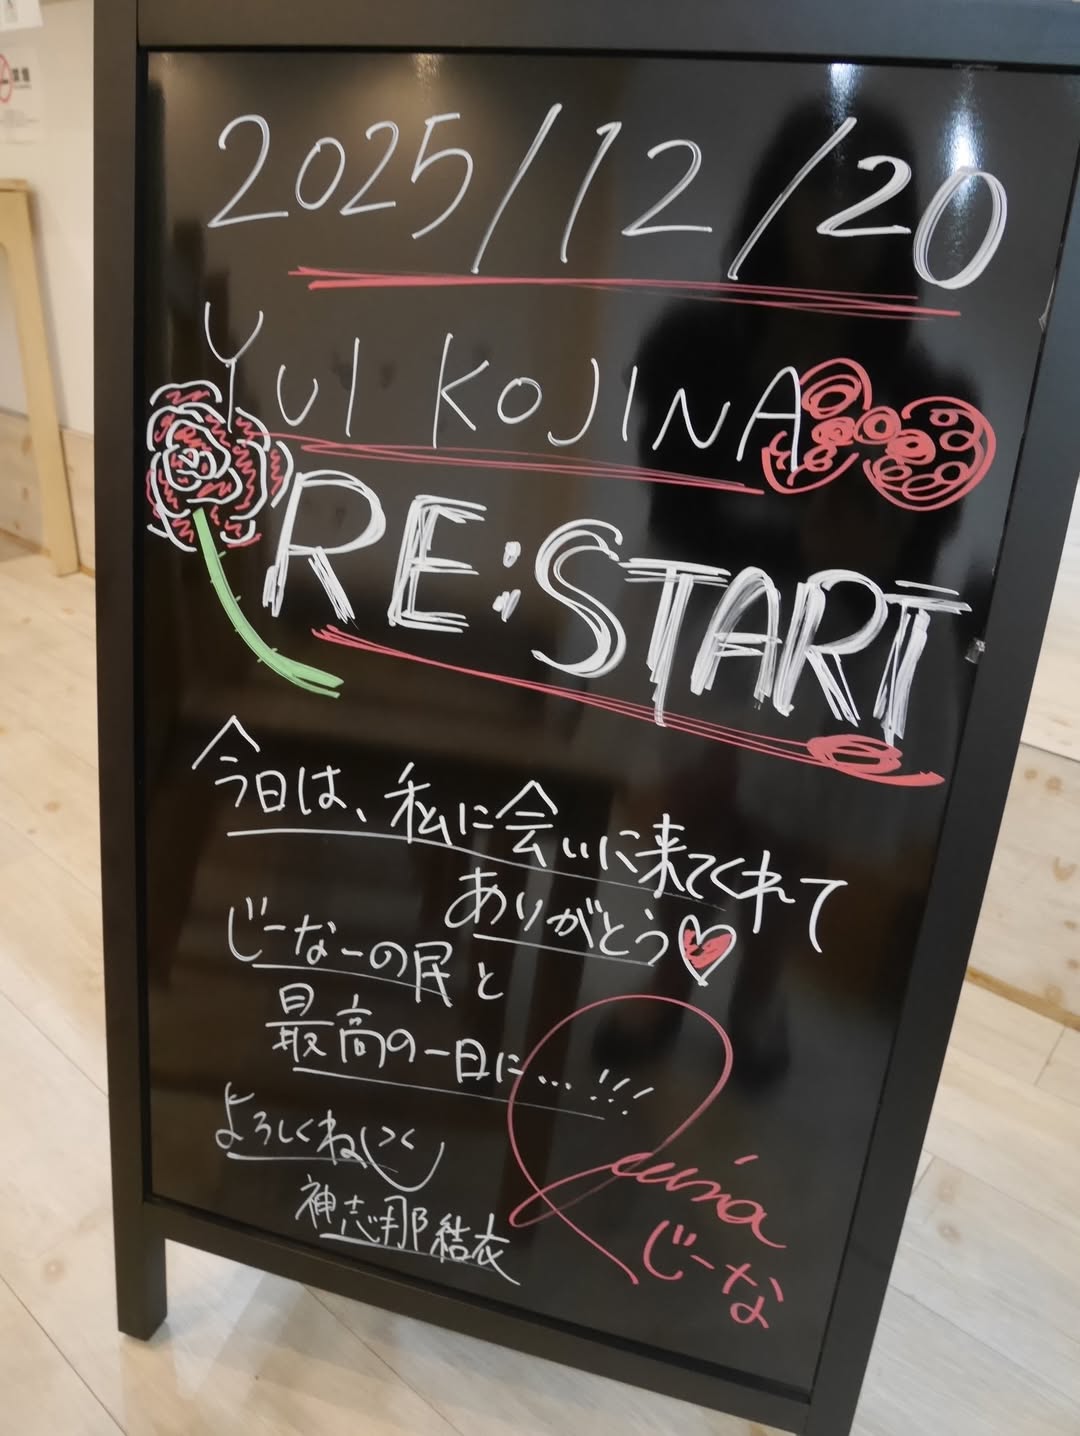 2025/12/20
YUI KOJINA
RE:START
今日は、私に会いに来てくれて
ありがとう♡
じーなーの民と
最高の一日に…!!!
よろしくね
神志那結衣
じーな